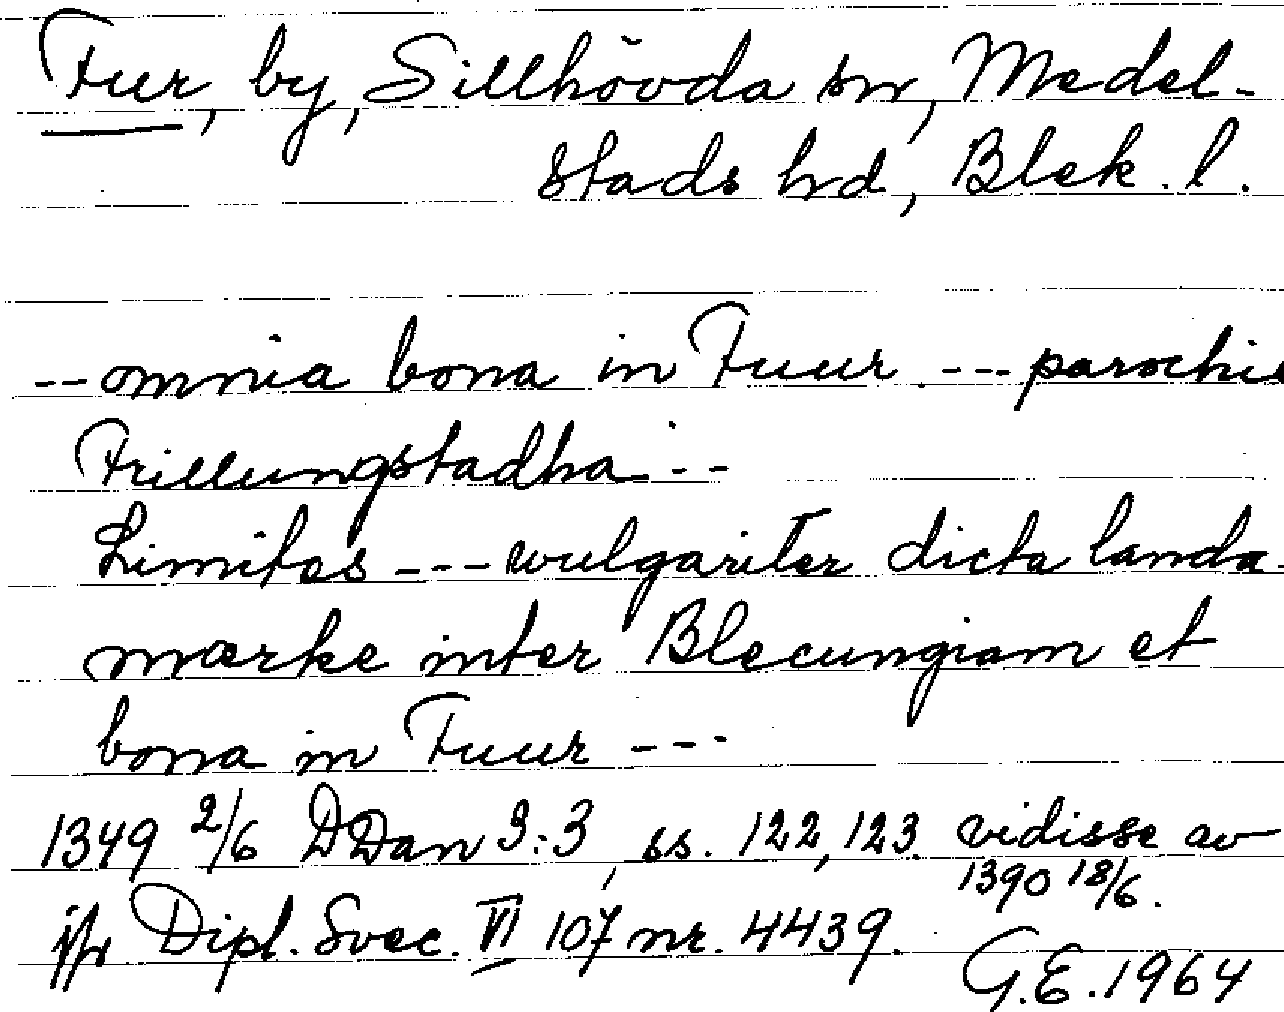 Fur, by, Sillhövda sn, Medel-
stads hd, Blek. l.
-- omnia bona in Fuur --- parochia
Frillungstadha ---
Limites --- wulgariter dicta landa-
mærke inter Blecungiam et
bona in Fuur ---
1349 2/6 DDan 3:3, ss. 122, 123. vidisse av
1390 18/6.
jfr Dipl. Svec. VI 107 nr. 4439.
G.E. 1964